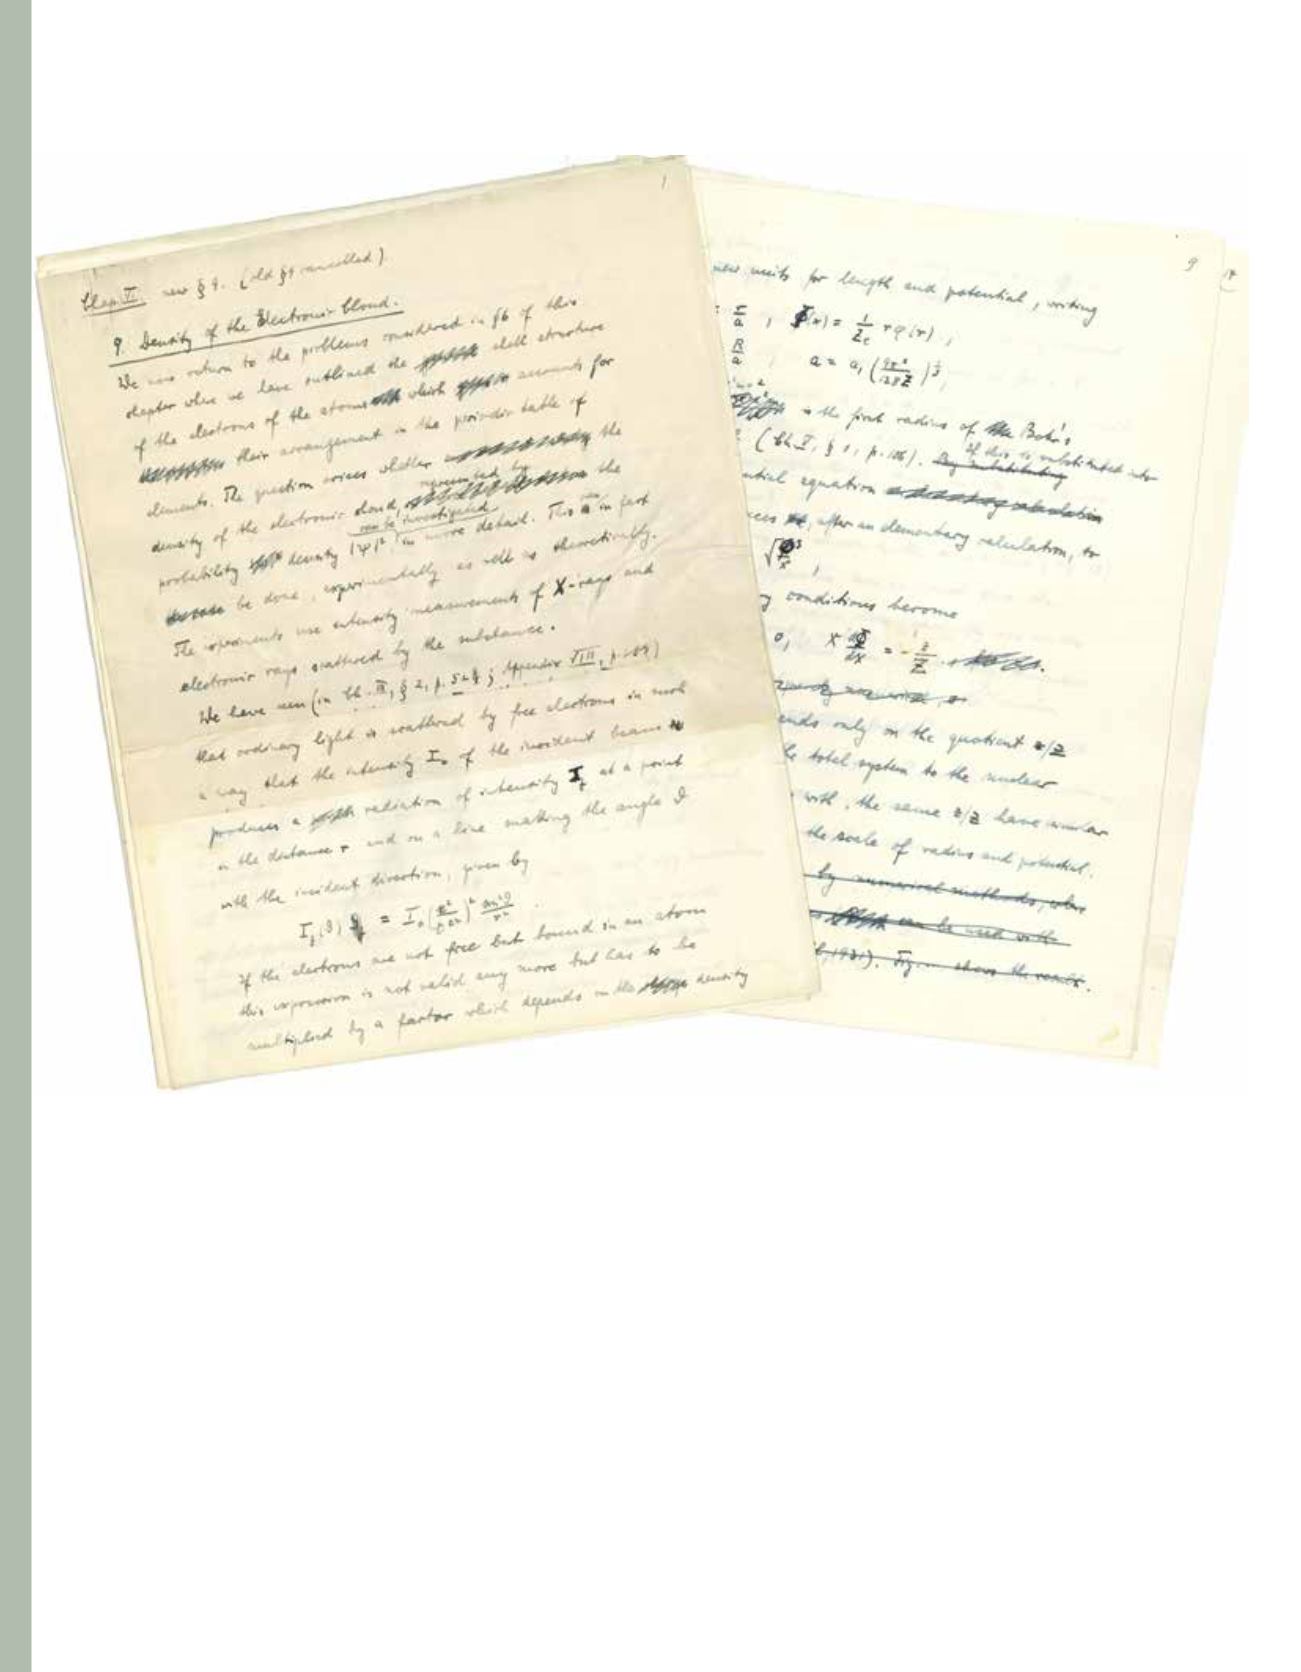 1
Chap. VI new § 9. (old § 9 cancelled).
9. Density of the Electronic Cloud.
We now return to the problems considered in § 6 of this
chapter where we have outlined the shell structure
of the electrons of the atoms which accounts for
their arrangement in the periodic table of
elements. The question arises whether the
density of the electronic cloud, represented by the
probability density |ψ|², can be investigated in more detail. This can in fact
be done, experimentally as well as theoretically.
The experiments use intensity measurements of X-rays and
electronic rays scattered by the substance.
We have seen (in Ch. IV, § 2, p. ; Appendix VIII, p. )
that ordinary light is scattered by free electrons in such
a way that the intensity I₀ of the incident beam
produces a radiation of intensity I at a point
in the distance r and on a line making the angle ϑ
with the incident direction, given by
I (ϑ) = I₀ (e²/mc²)² sin²ϑ/r² .
If the electrons are not free but bound in an atom
this expression is not valid any more but has to be
multiplied by a factor which depends on the density
9
new units for length and potential, writing
r/a , Φ(x) = 1/Ze r φ(r) ,
R/a a = a₁ (9π²/128Z)^⅓ ,
is the first radius of Bohr's
(Ch. V, § 1, p. 106). If this is substituted into
equation
, after an elementary calculation, to
√Φ³/x ,
conditions become
0, x dΦ/dx = - z/Z
only on the quotient z/Z
the total system to the nuclear
with the same z/Z have similar
the scale of radius and potential.
by numerical methods,
can be used with
, 1931). Fig. shows the